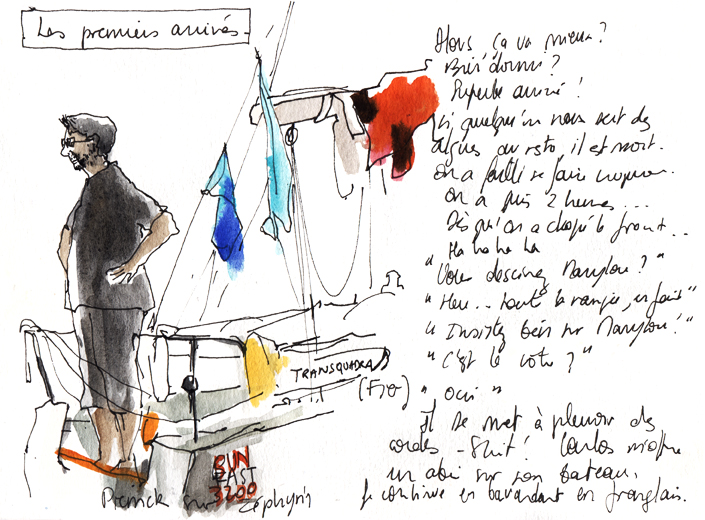 Les premiers arrivés.
Alors ça va mieux?
Bien dormi?
Superbe arrivée!
Si quelqu'un nous sert des
algues au resto, il est mort.
On a failli se faire
On a pris 2 heures...
Dès qu'on a chopé le front..
Ha ha ha ha
"Vous dessinez Marylou?"
"Heu.. toute la rangée, en fait"
"Insistez bien sur Marylou!"
"C'est le vôtre?"
"Oui"
Il se met à pleuvoir des
cordes - Shit! Carlos m'offre
un abri sur son bateau,
Je continue en bavardant en franglais.
TRANSQUADRA
(F70)
SUN
FAST
3200
Pierrick sur Zéphyrin